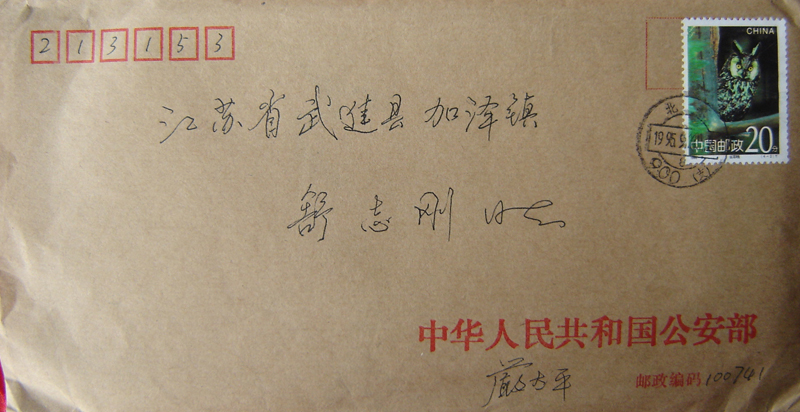 213153
CHINA
江苏省武进县加泽镇
中国邮政20分
北
1995.9
006
舒志刚 收
中华人民共和国公安部
严太平
邮政编码100741